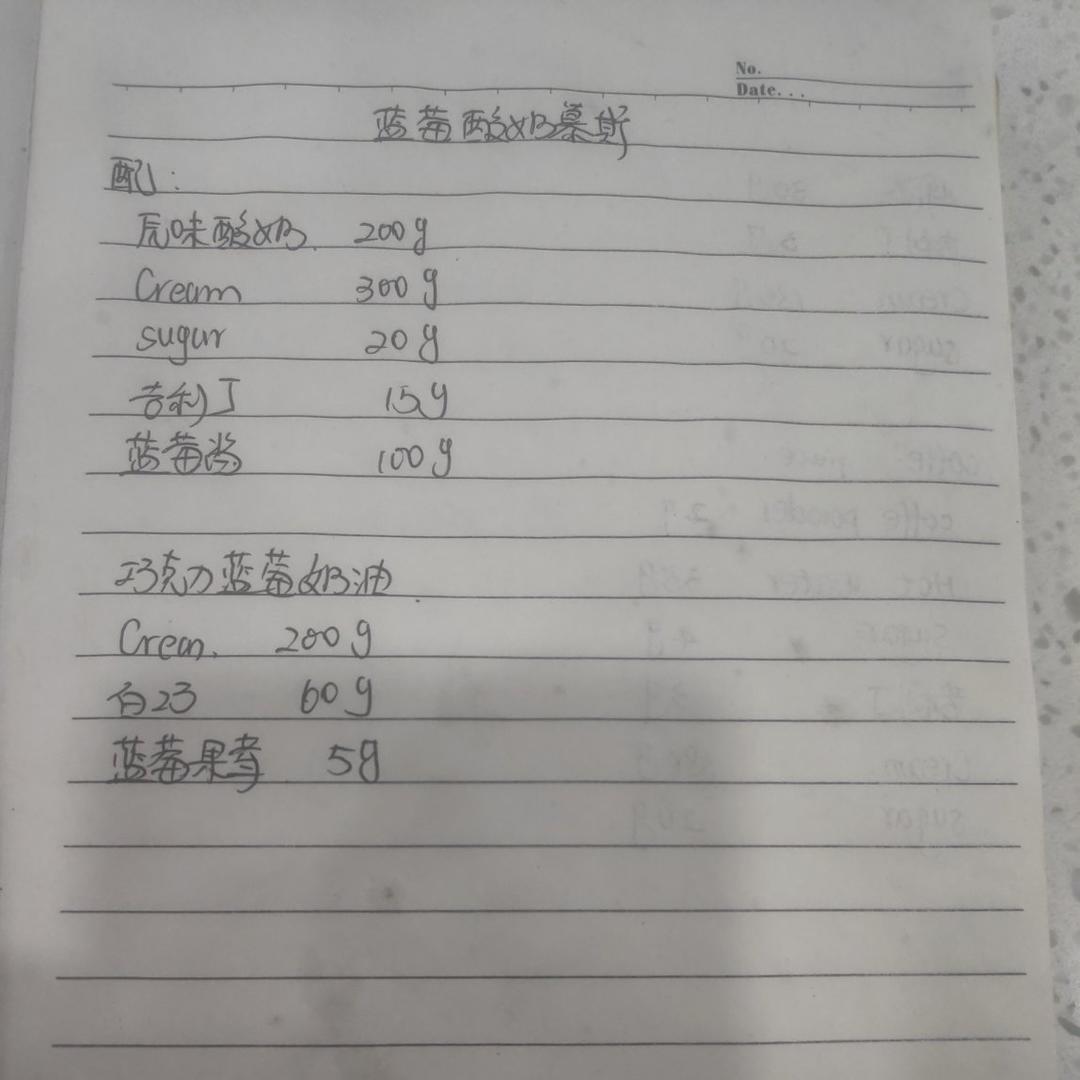 No.
Date. . .
蓝莓酸奶慕斯
配:
原味酸奶 200g
Cream 300g
sugar 20g
吉利丁 15g
蓝莓酱 100g
巧克力蓝莓奶油
Cream. 200g
白巧 60g
蓝莓果膏 5g